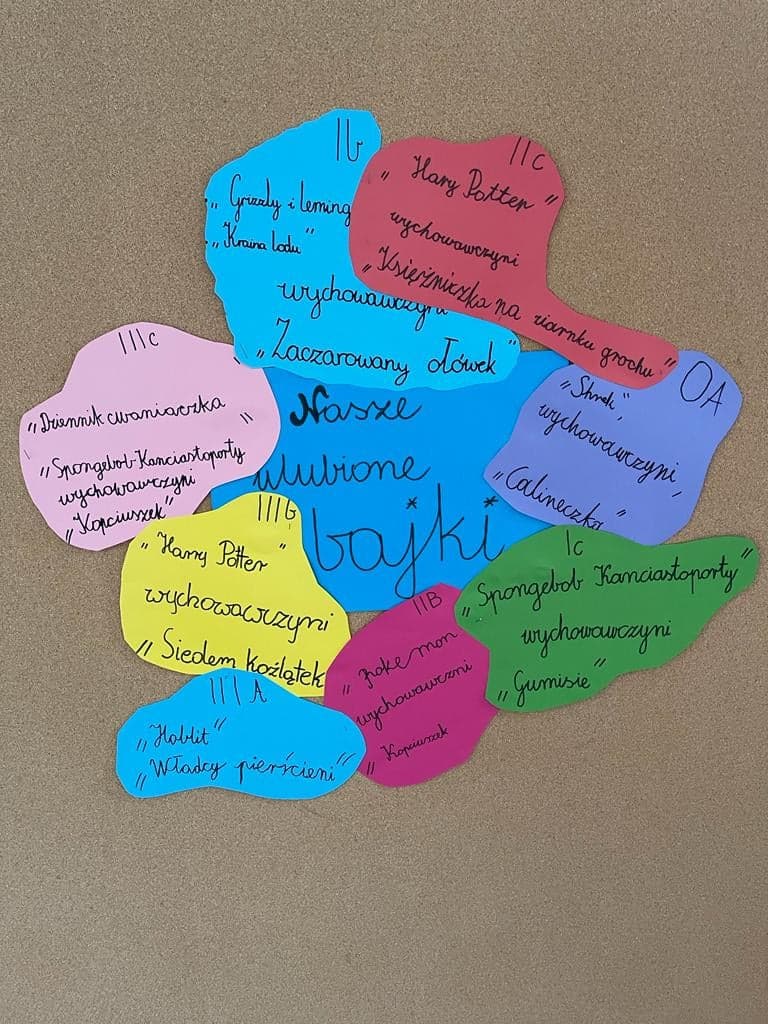 Ib
„Grizzly i leming
„Kraina lodu"
wychowawczyni
„Zaczarowany ołówek"
IIc
„Hary Potter"
wychowawczyni
„Księżniczka na ziarnku grochu"
IIIc
„Dziennik cwaniaczka"
„Spongebob Kanciastoporty
wychowawczyni
„Kopciuszek"
Nasze
ulubione
bajki
OA
„Shrek"
wychowawczyni
„Calineczka"
IIIb
„Harry Potter"
wychowawczyni
„Siedem koźlątek
IIB
„Pokemon
wychowawczni
„Kopciuszek
Ic
„Spongebob Kanciastoporty"
wychowawczyni
„Gumisie"
IIIA
„Hobbit"
„Władcy pierścieni"